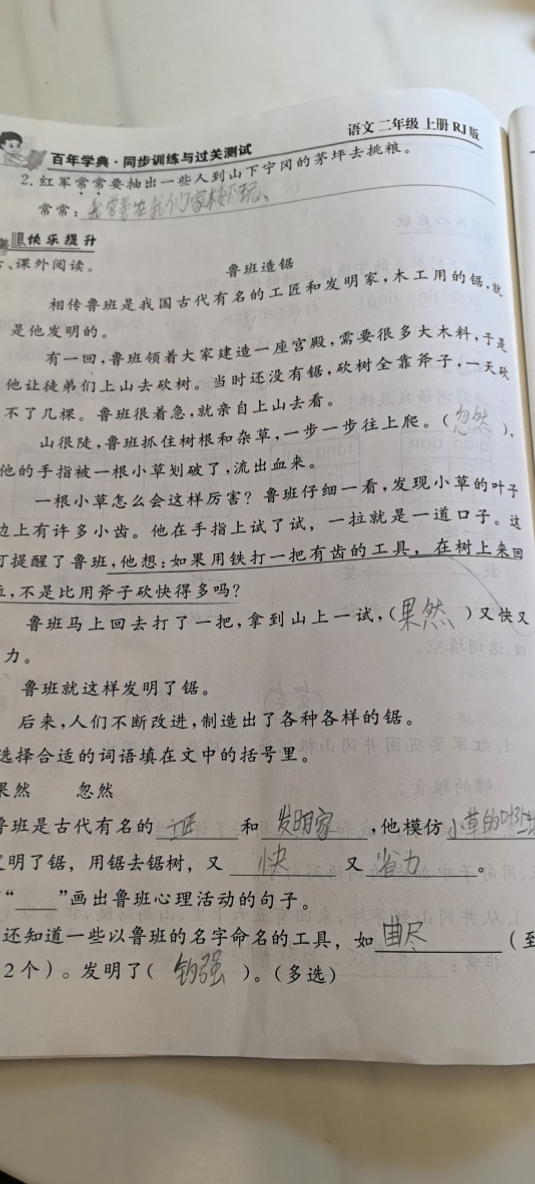 语文 二年级 上册 RJ 版
百年学典·同步训练与过关测试
2. 红军常常要抽出一些人到山下宁冈的茅坪去挑粮。
常常：我常常在我们家楼下玩。
快乐提升
、课外阅读。
鲁班造锯
相传鲁班是我国古代有名的工匠和发明家，木工用的锯，就
是他发明的。
有一回，鲁班领着大家建造一座宫殿，需要很多大木料，于是
他让徒弟们上山去砍树。当时还没有锯，砍树全靠斧子，一天砍
不了几棵。鲁班很着急，就亲自上山去看。
山很陡，鲁班抓住树根和杂草，一步一步往上爬。（忽然），
他的手指被一根小草划破了，流出血来。
一根小草怎么会这样厉害？鲁班仔细一看，发现小草的叶子
边上有许多小齿。他在手指上试了试，一拉就是一道口子。这
可提醒了鲁班，他想：如果用铁打一把有齿的工具，在树上来回
，不是比用斧子砍快得多吗？
鲁班马上回去打了一把，拿到山上一试，（果然）又快又
力。
鲁班就这样发明了锯。
后来，人们不断改进，制造出了各种各样的锯。
选择合适的词语填在文中的括号里。
果然 忽然
鲁班是古代有名的 工匠 和 发明家，他模仿 小草的叶
明了锯，用锯去锯树，又 快 又 省力。
“____”画出鲁班心理活动的句子。
还知道一些以鲁班的名字命名的工具，如 曲尺（至
2个）。发明了（ 钩强 ）。（多选）